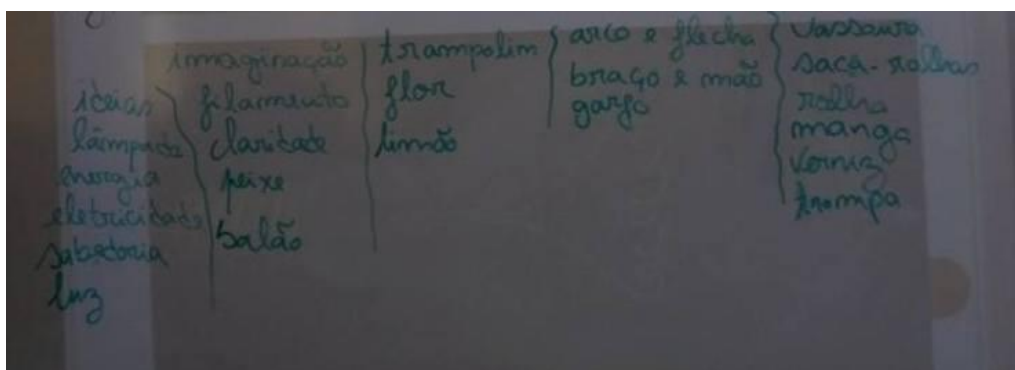 ideias
lâmpada
energia
eletricidade
sabedoria
luz
imaginação
filamento
claridade
peixe
balão
trampolim
flor
limão
arco e flecha
braço e mão
garfo
vassoura
saca-rolhas
rolha
manga
verniz
trompa